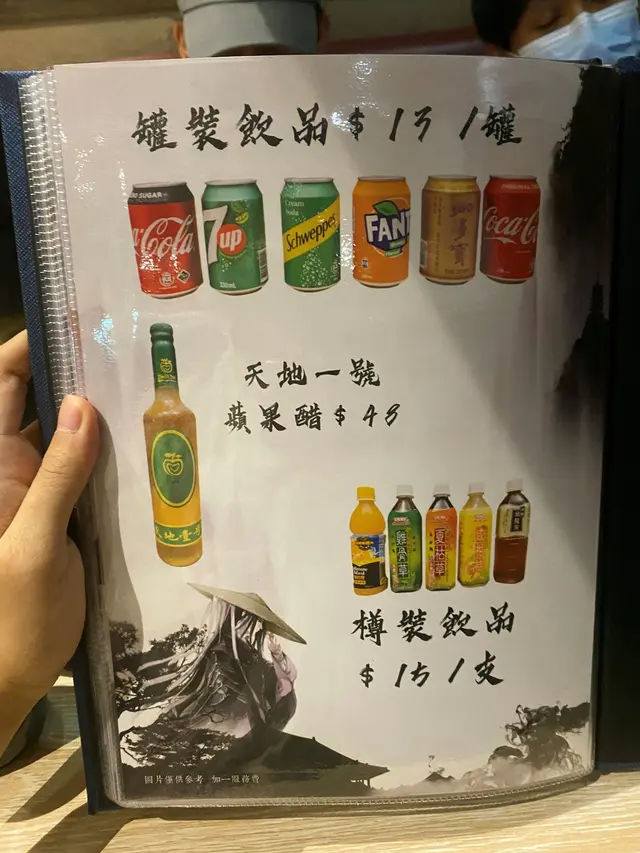 罐裝飲品 $ 13 /罐
SUGAR
Coca-Cola
7up
330mL
Cream
Soda
Schweppes
FANT
Coca-C
天地一號
蘋果醋 $ 48
雞骨草
夏枯草
樽裝飲品
$ 15 /支
圖片僅供參考 加一服務費